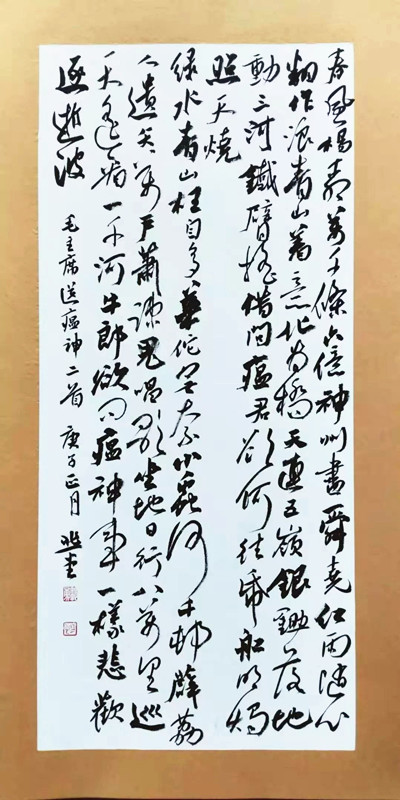 春風楊柳萬千條六億神州盡舜堯紅雨隨心
翻作浪青山着意化為橋天連五嶺銀鋤落地
動三河鐵臂搖借問瘟君欲何往紙船明燭
照天燒
綠水青山枉自多華佗無奈小蟲何千村薜荔
人遺矢萬戶蕭疏鬼唱歌坐地日行八萬里巡
天遙看一千河牛郎欲問瘟神事一樣悲歡
逐逝波
毛主席送瘟神二首 庚子正月